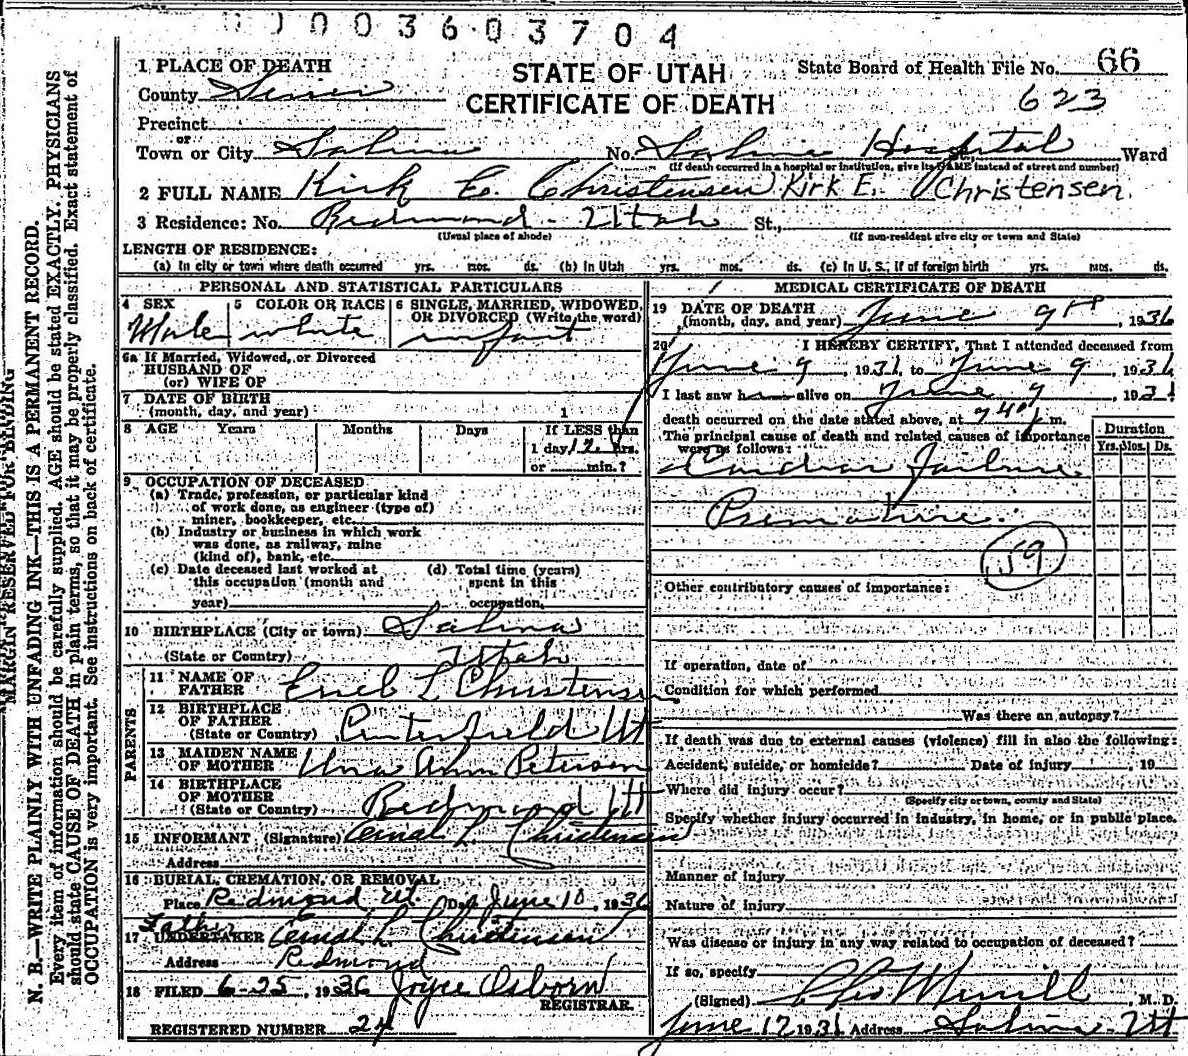 0003603704
1 PLACE OF DEATH
STATE OF UTAH
State Board of Health File No. 66
County Sevier
CERTIFICATE OF DEATH
623
Precinct
or
Town or City Salina No. Salina Hospital Ward
(If death occurred in a hospital or institution, give its NAME instead of street and number)
2 FULL NAME Kirk E. Christensen Kirk E. Christensen
3 Residence: No. Redmond - Utah St.,
(Usual place of abode) (If non-resident give city or town and State)
LENGTH OF RESIDENCE:
(a) In city or town where death occurred yrs. mos. ds. (b) In Utah yrs. mos. ds. (c) In U. S., if of foreign birth yrs. mos. ds.
PERSONAL AND STATISTICAL PARTICULARS
4 SEX 5 COLOR OR RACE 6 SINGLE, MARRIED, WIDOWED,
OR DIVORCED (Write the word)
Male white infant
6a If Married, Widowed, or Divorced
HUSBAND OF
(or) WIFE OF
7 DATE OF BIRTH
(month, day, and year)
8 AGE Years Months Days If LESS than
1 day, 12 hrs.
or min.?
9 OCCUPATION OF DECEASED
(a) Trade, profession, or particular kind
of work done, as engineer (type of)
miner, bookkeeper, etc.
(b) Industry or business in which work
was done, as railway, mine
(kind of), bank, etc.
(c) Date deceased last worked at
this occupation (month and
year)
(d) Total time (years)
spent in this
occupation
10 BIRTHPLACE (City or town) Salina
(State or Country) Utah
PARENTS
11 NAME OF
FATHER L Christensen
12 BIRTHPLACE
OF FATHER
(State or Country) Centerfield Ut
13 MAIDEN NAME
OF MOTHER Una Ann Petersen
14 BIRTHPLACE
OF MOTHER
(State or Country) Redmond Ut
15 INFORMANT (Signature) L. Christensen
Address
16 BURIAL, CREMATION, OR REMOVAL
Place Redmond Ut. Date June 10, 1936
Father
17 UNDERTAKER L Christensen
Address Redmond
18 FILED 6-25, 1936 Joyce Osborn
REGISTRAR.
REGISTERED NUMBER 24
MEDICAL CERTIFICATE OF DEATH
19 DATE OF DEATH
(month, day, and year) June 9th, 1936
20 I HEREBY CERTIFY, That I attended deceased from
June 9, 1936, to June 9, 1936
I last saw h alive on June 9, 193
death occurred on the date stated above, at m.
The principal cause of death and related causes of importance
were as follows:
Duration
Yrs. Mos. Ds.
Cardiac Failure
Premature.
59
Other contributory causes of importance:
If operation, date of
Condition for which performed
Was there an autopsy?
If death was due to external causes (violence) fill in also the following:
Accident, suicide, or homicide? Date of injury , 19
Where did injury occur?
(Specify city or town, county and State)
Specify whether injury occurred in industry, in home, or in public place.
Manner of injury
Nature of injury
Was disease or injury in any way related to occupation of deceased?
If so, specify
(Signed) Merrill, M. D.
June 17 1936 Address Salina - Ut
MARGIN RESERVED FOR BINDING
N. B.—WRITE PLAINLY WITH UNFADING INK—THIS IS A PERMANENT RECORD.
Every item of information should be carefully supplied. AGE should be stated EXACTLY. PHYSICIANS
should state CAUSE OF DEATH in plain terms, so that it may be properly classified. Exact statement of
OCCUPATION is very important. See instructions on back of certificate.